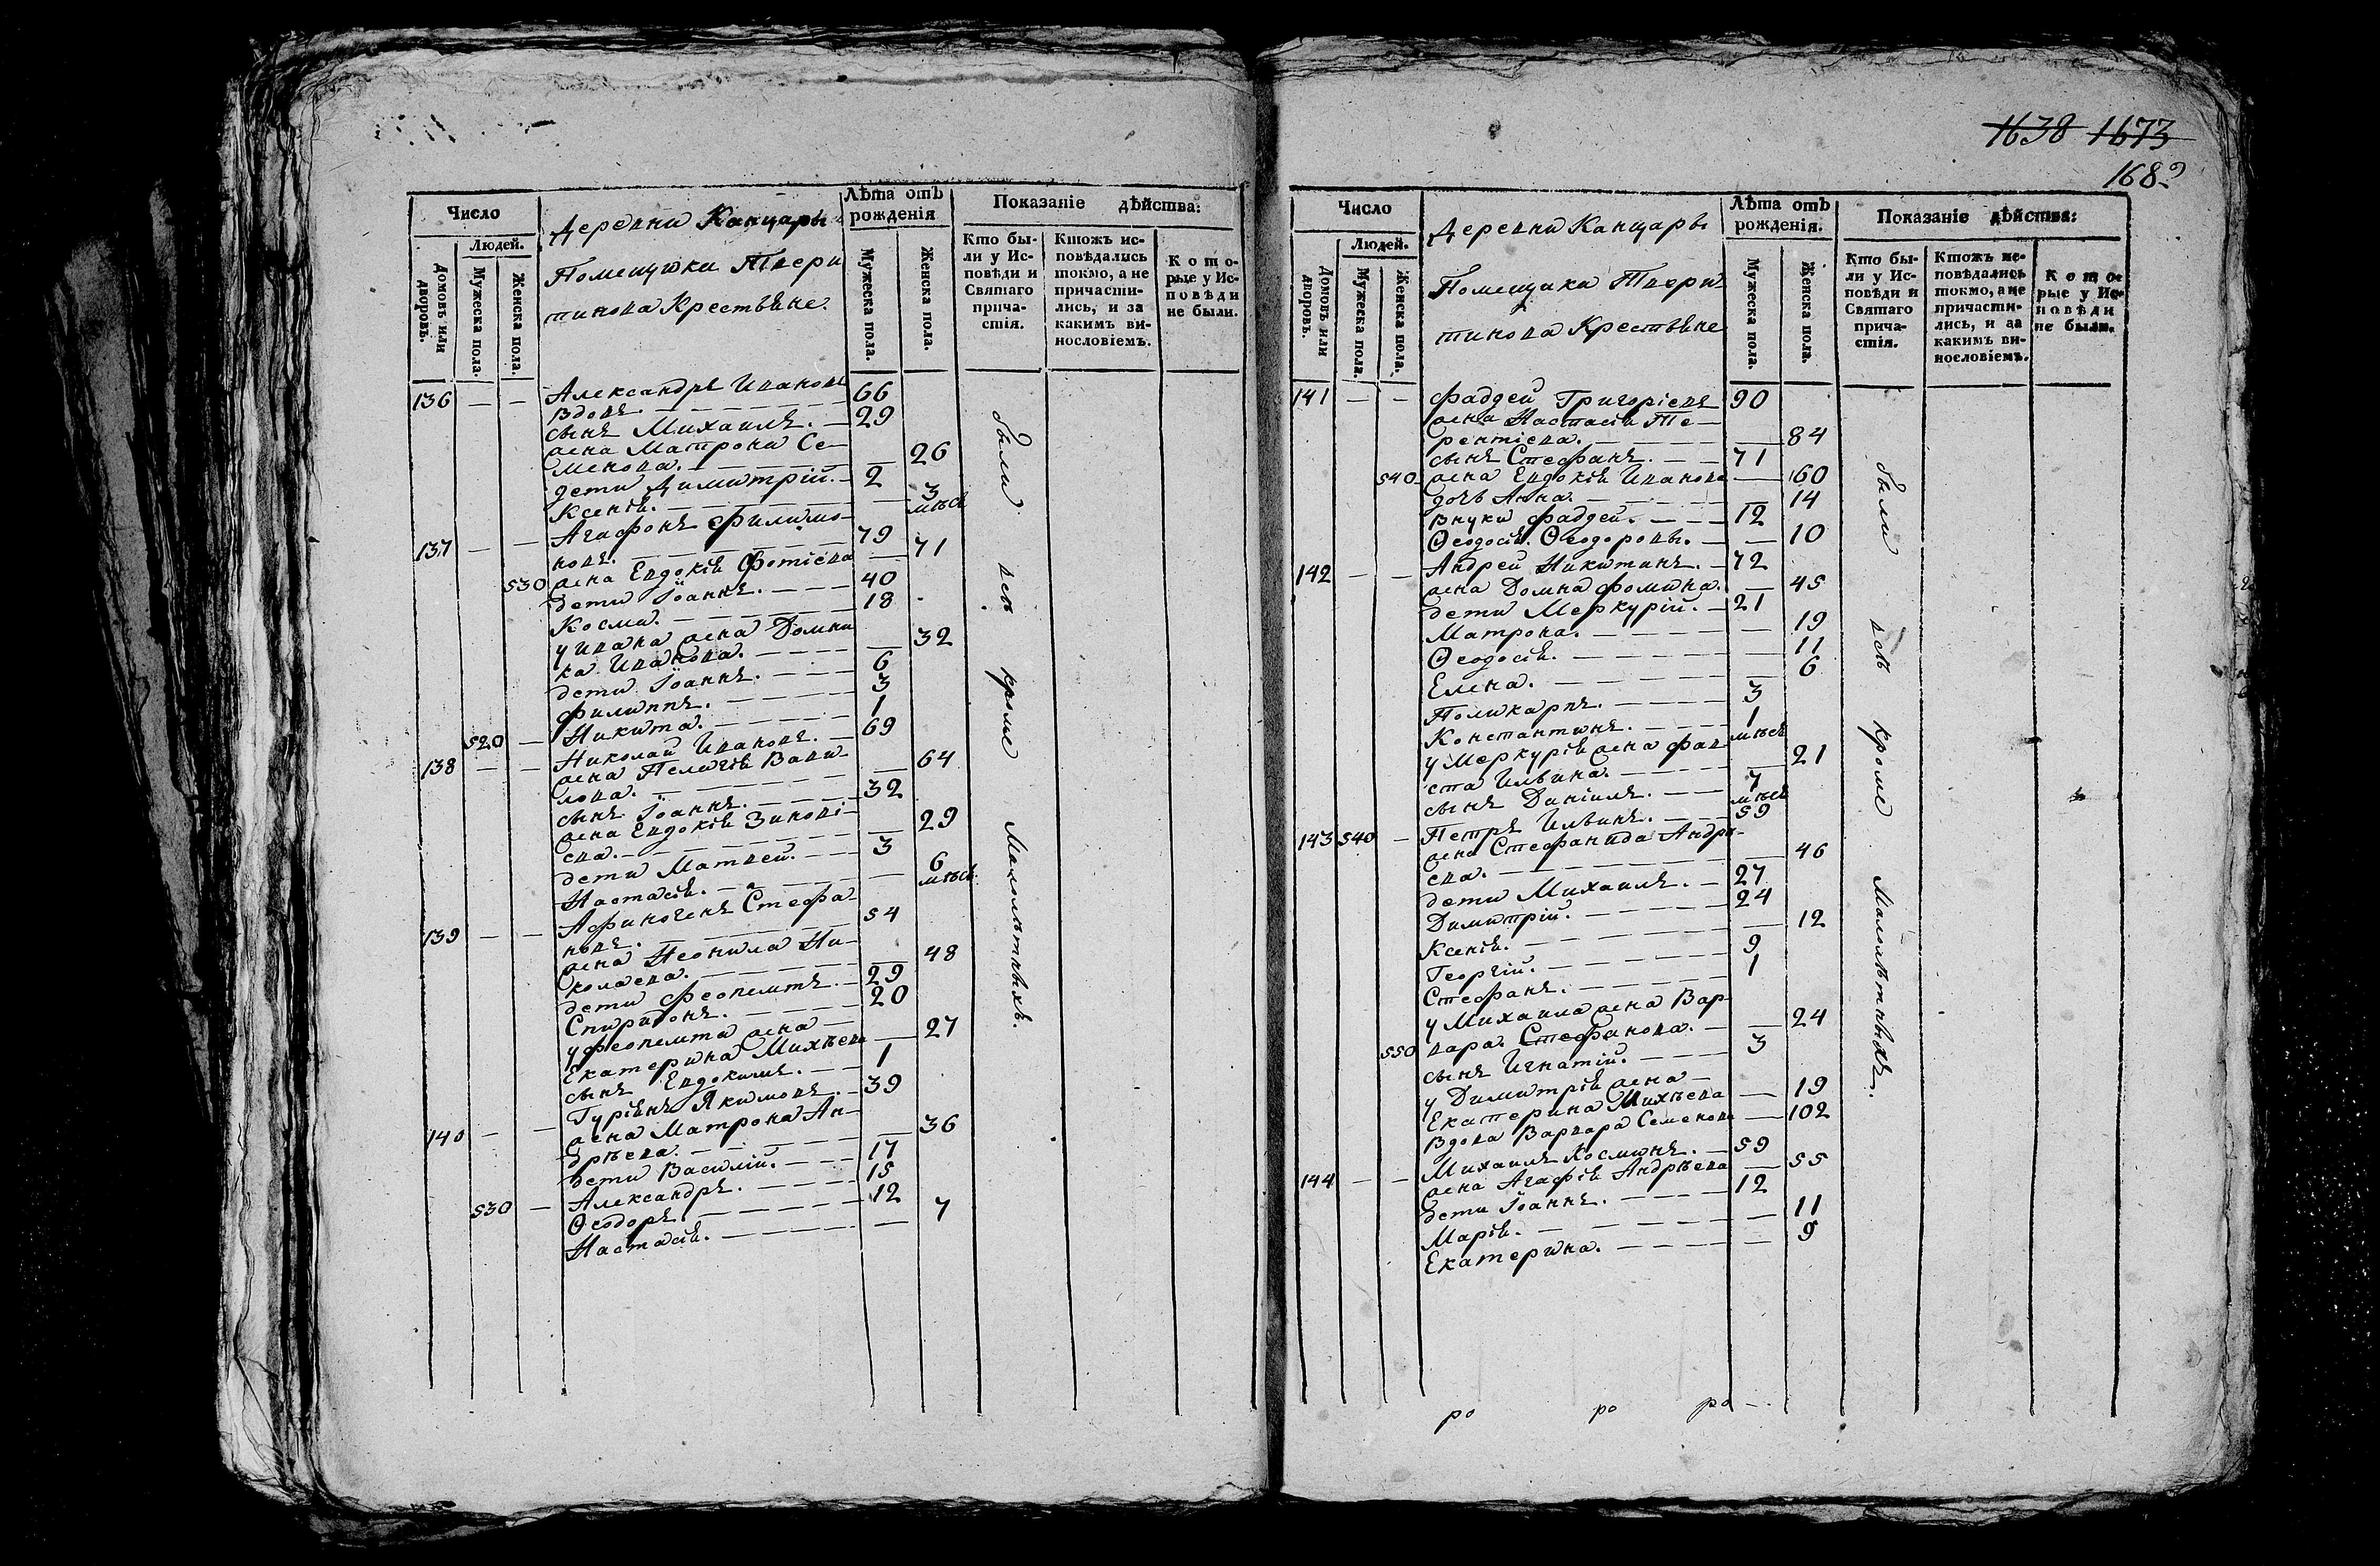 Число
Людей.
Домовъ или дворовъ.
Мужеска пола.
Женска пола.
Деревни Канцары
Помещики Твери
тинова Крестьяне.
Лѣта отъ рожденія
Мужеска пола.
Женска пола.
Показаніе дѣйства:
Кто бы-
ли у Ис-
повѣди и
Святаго
прича-
стія.
Ктожъ ис-
повѣдались
токмо, а не
причасти-
лись, и за
какимъ ви-
нословіемъ.
К о т о-
рые у Ис-
п о в ѣ д и
не были.
136 — — Александръ Ивановъ 66
Вдовъ.
сынъ Михаилъ. — 29
жена Матрона Се-
менова. — 26
дети Димитрій. — 2
Ксенія. — 3 мѣсѣ
137 — — Агафонъ Филимо-
новъ. 79
530 жена Евдокія Фотіева — 71
дети Іоаннъ. 40
Косма. 18
у Ивана жена Домни
ка Иванова. — 32
дети Іоаннъ. 6
Филиппъ. 3
520 — Никита. 1
138 — — Николай Ивановъ. 69
жена Пелагія Вави-
лова. — 64
сынъ Іоаннъ. 32
жена Евдокія Зинові-
ева. — 29
дети Матвей. 3
Настасія. — 6 мѣсѣ
139 — — Афиногенъ Стефа-
новъ. 54
жена Неонила Ни-
колаева. — 48
дети Феопемтъ. 29
Спиридонъ. 20
у Феопемта жена —
Екатерина Михѣева — 27
сынъ Евдокимъ. 1
140 — — Гурiянъ Якимовъ. 39
жена Матрона Ан-
дрѣева. — 36
дети Василій. 17
530 — Александръ. 15
Ѳеодоръ. 12
Настасія. — 7
были
всѣ
кроме
Малолѣтнихъ.
1638 1673
168
Число
Людей.
Домовъ или дворовъ.
Мужеска пола.
Женска пола.
Деревни Канцары
Помещика Твери
тинова Крестьяне
Лѣта отъ рожденія.
Мужеска пола.
Женска пола.
Показаніе дѣйства:
Кто бы-
ли у Ис-
повѣди и
Святаго
прича-
стія.
Ктожъ ис-
повѣдались
токмо, а не
причасти-
лись, и за
какимъ ви-
нословіемъ.
К о т о-
рые у Ис-
п о в ѣ д и
не были.
141 — — Фаддей Григоріевъ 90
жена Настасія Те-
рентіева. — 84
сынъ Стефанъ. 71
540 жена Евдокія Иванова — 60
дочь Анна. — 14
Внуки Фаддей. 12
Ѳеодосія Ѳеодоровы. — 10
142 — — Андрей Никитинъ. 72
жена Домна Фомина. — 45
дети Меркурій. 21
Матрона. — 19
Ѳеодосія. — 11
Елена. — 6
Поликарпъ. 3
Константинъ. 1 мѣсѣ
у Меркурія жена Фав
ста Ильина. — 21
сынъ Даніилъ. 7 мѣсѣ
143 540 — Петръ Ильинъ. 59
жена Стефанида Андре-
ева. — 46
дети Михаилъ. 27
Димитрій. 24
Ксенія. — 12
Георгій. 9
Стефанъ. 1
у Михаила жена Вар-
550 вара Стефанова. — 24
сынъ Игнатій. 3
у Димитрія жена —
Екатерина Михѣева — 19
Вдова Варвара Семенова — 102
144 — — Михаилъ Косминъ. 59
жена Агафія Андрѣева — 55
дети Іоаннъ. 12
Марія. — 11
Екатерина. — 9
были
всѣ
кроме
Малолѣтнихъ.
ро ро ро